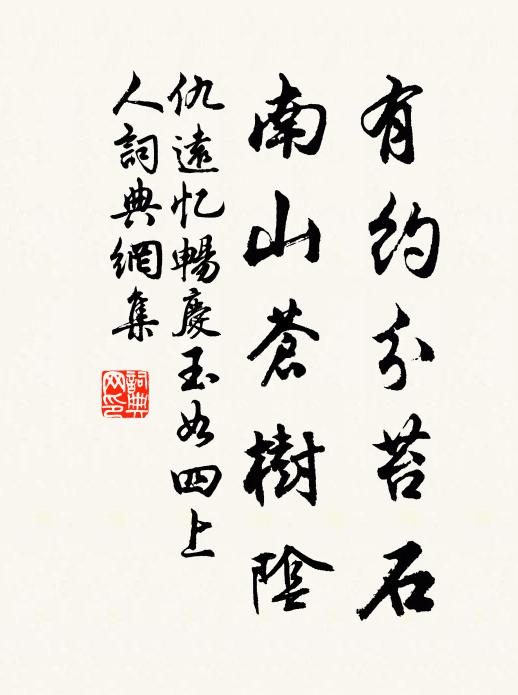 有約分苔石
南山蒼樹陰
仇遠忆暢慶玉如四上
人詞典網集
詞典网印